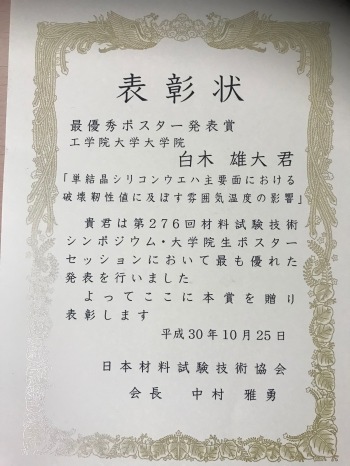 表彰状
最優秀ポスター発表賞
工学院大学大学院
白木 雄大 君
「単結晶シリコンウエハ主要面における
破壊靭性値に及ぼす雰囲気温度の影響」
貴君は第276回材料試験技術
シンポジウム・大学院生ポスター
セッションにおいて最も優れた
発表を行いました
よってここに本賞を贈り
表彰します
平成30年10月25日
日本材料試験技術協会
会長 中村 雅勇